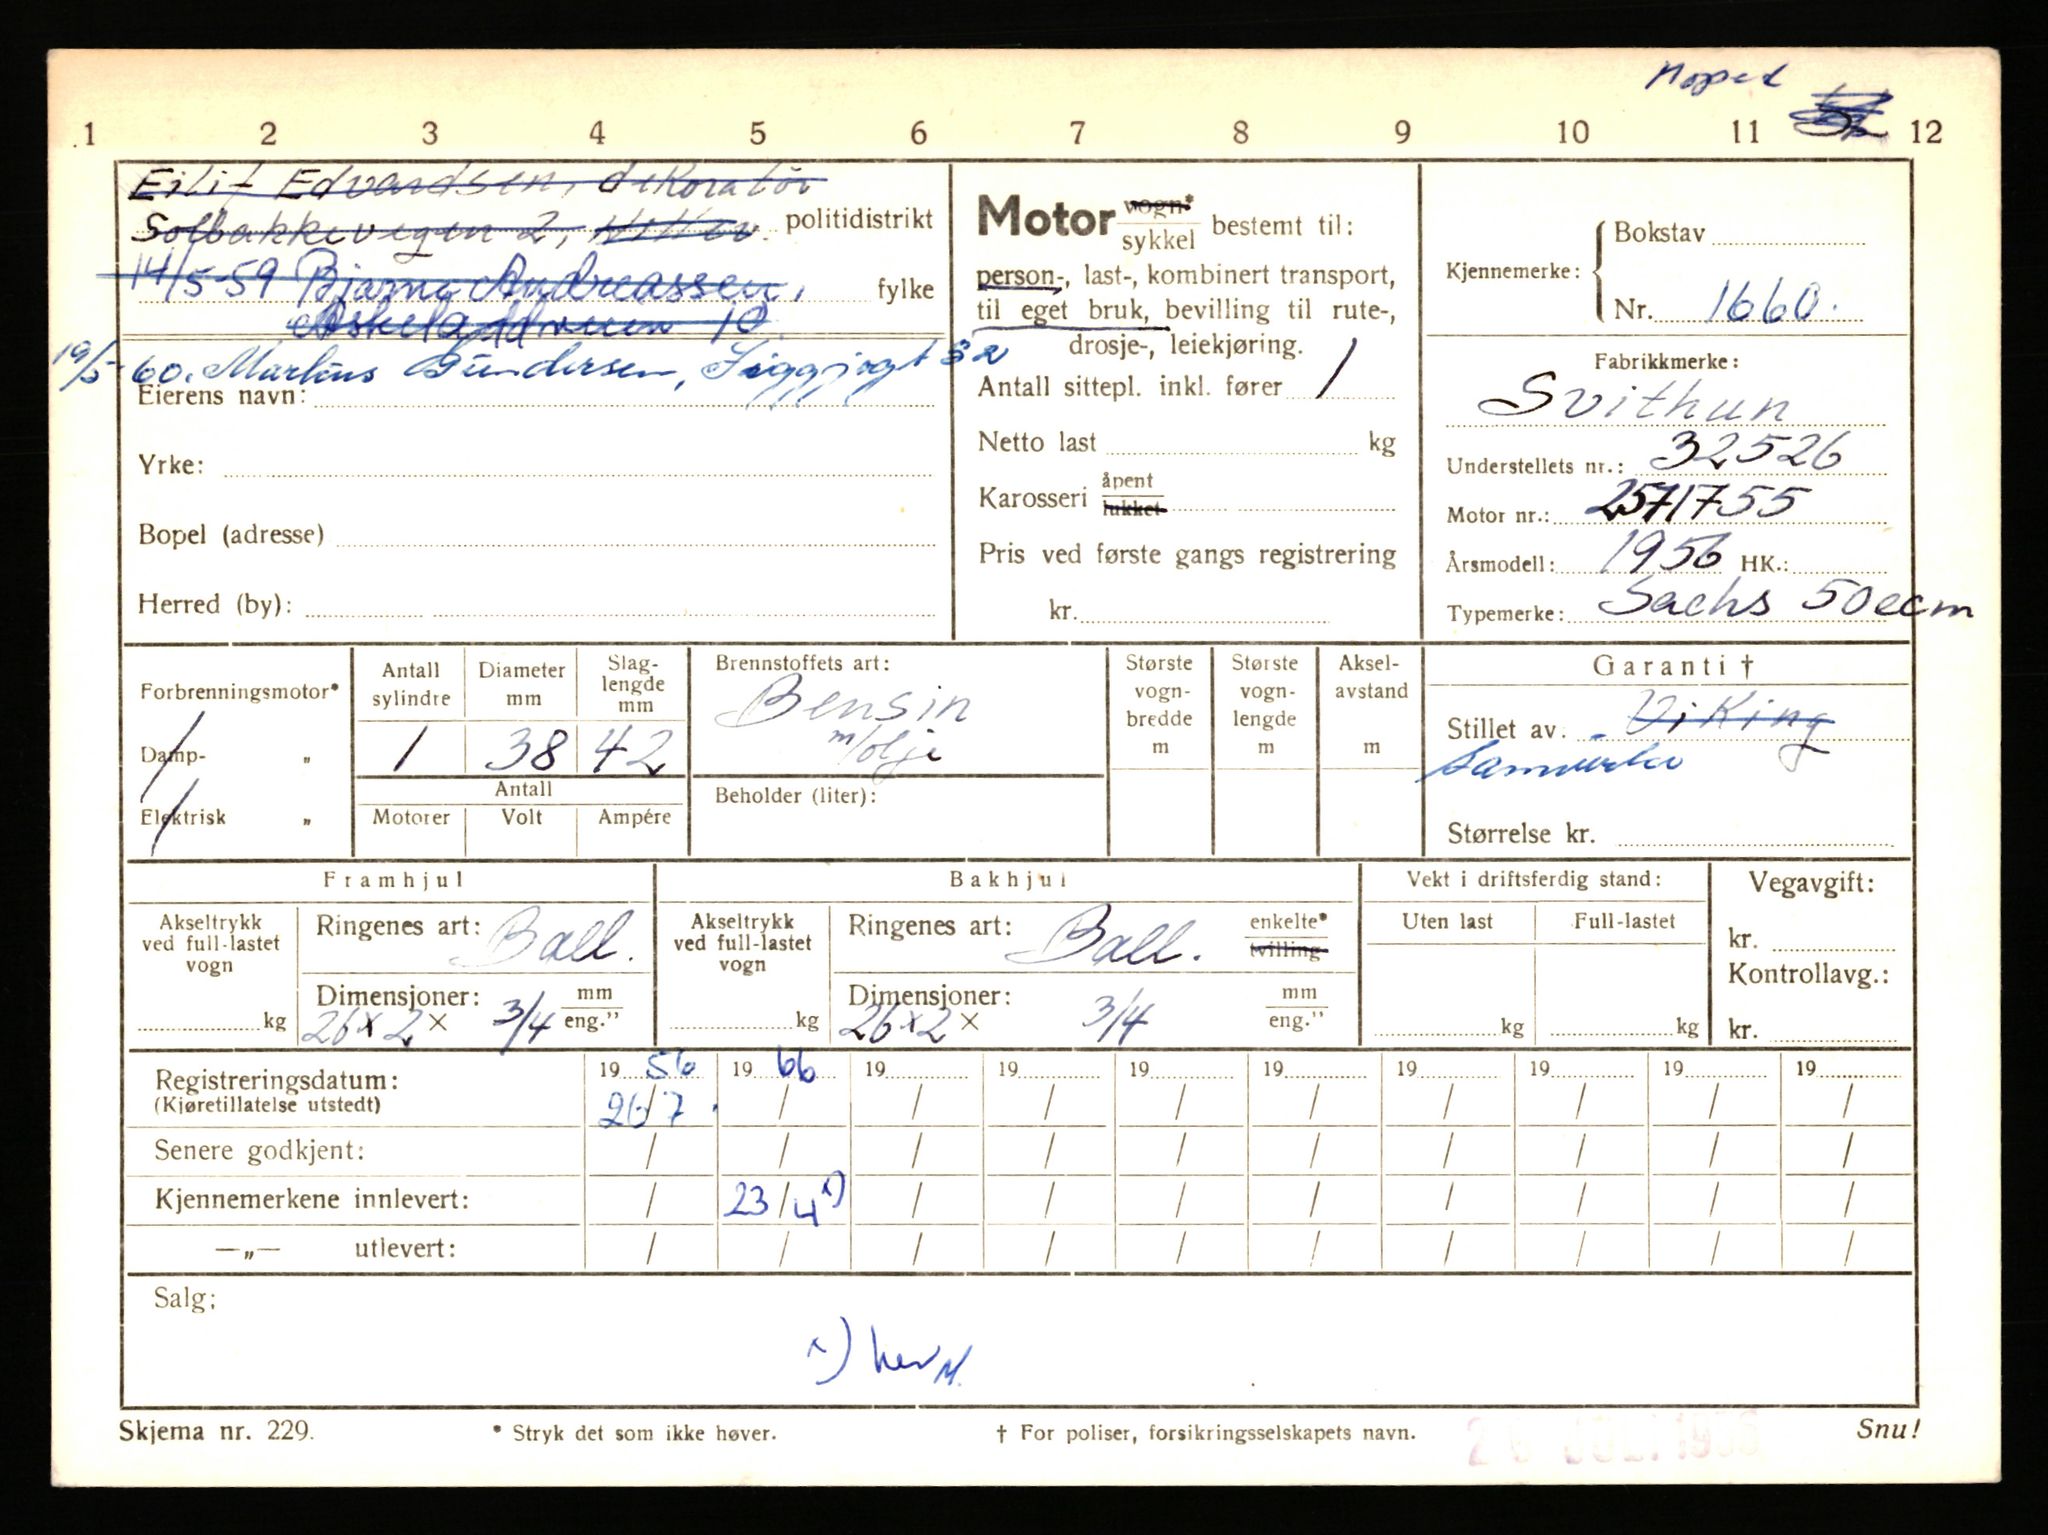 Moped
1 2 3 4 5 6 7 8 9 10 11 12
Eilif Edvardsen, dekoratør
Solbakkevegen 2, politidistrikt
14/5-59 Bjarne Andreassen, fylke
Askeladdveien 10
19/5-60. Martins Gundersen, 32
Eierens navn:
Yrke:
Bopel (adresse)
Herred (by):
Motor vogn* sykkel bestemt til:
person-, last-, kombinert transport,
til eget bruk, bevilling til rute-,
drosje-, leiekjøring.
Antall sittepl. inkl. fører 1
Netto last kg
Karosseri åpent lukket
Pris ved første gangs registrering
kr.
Kjennemerke: Bokstav
Nr. 1660.
Fabrikkmerke:
Svithun
Understellets nr.: 32526
Motor nr.: 2571755
Årsmodell: 1956 HK.:
Typemerke: Sachs 50ccm
Forbrenningsmotor*
Damp- "
Elektrisk "
Antall sylindre 1
Diameter mm 38
Slag-lengde mm 42
Antall
Motorer Volt Ampére
Brennstoffets art:
Bensin
m/olje
Beholder (liter):
Største vogn-bredde m
Største vogn-lengde m
Aksel-avstand m
Garanti †
Stillet av. Viking
Samvirke
Størrelse kr.
Framhjul
Akseltrykk ved full-lastet vogn kg
Ringenes art: Ball.
Dimensjoner: mm eng."
26 x 2 x 3/4
Bakhjul
Akseltrykk ved full-lastet vogn kg
Ringenes art: Ball. enkelte* tvilling
Dimensjoner: mm eng."
26 x 2 x 3/4
Vekt i driftsferdig stand:
Uten last Full-lastet
kg kg
Vegavgift:
kr.
Kontrollavg.:
kr.
Registreringsdatum: 19 56 19 66 19 19 19 19 19 19 19 19
(Kjøretillatelse utstedt) 26/7 / / / / / / / / /
Senere godkjent: / / / / / / / / / /
Kjennemerkene innlevert: / 23/4 x) / / / / / / / /
—„— utlevert: / / / / / / / / / /
Salg;
x)
Skjema nr. 229.
* Stryk det som ikke høver.
† For poliser, forsikringsselskapets navn.
26 JUL. 1956
Snu!